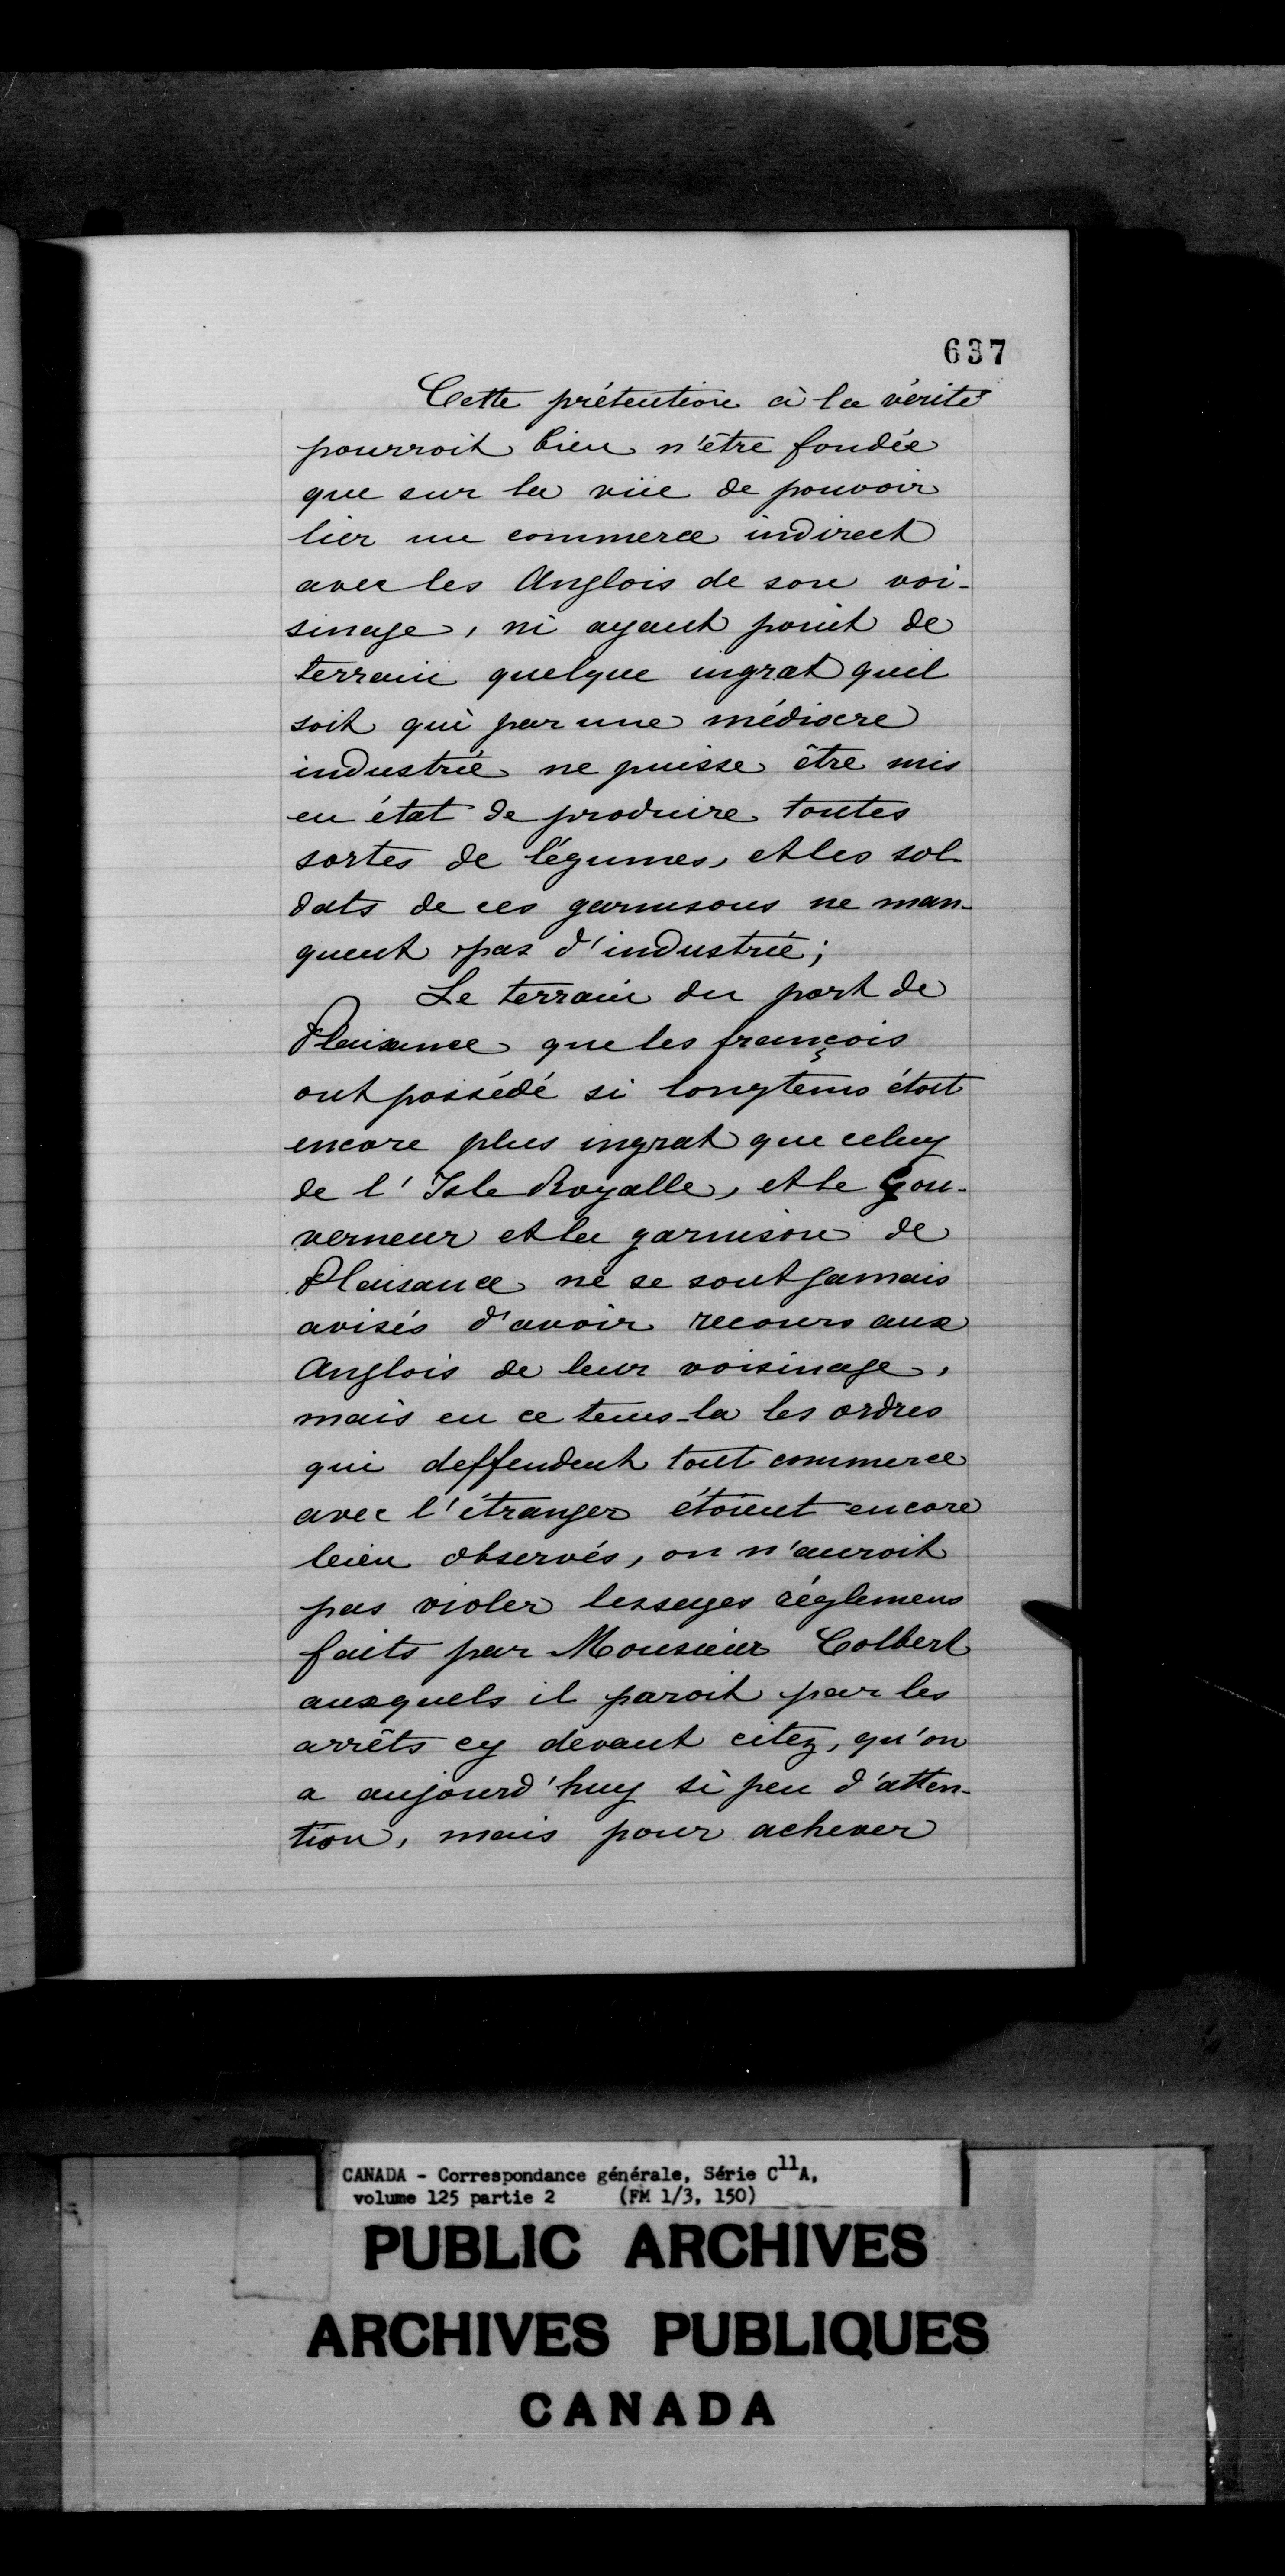 637
Cette prétention à la vérité
pourroit bien n'être fondée
que sur la vüe de pouvoir
lier un commerce indirect
avec les Anglois de son voi-
sinage, ni ayant point de
terrain quelque ingrat quil
soit qui par une médiocre
industrie ne puisse être mis
en état de produire toutes
sortes de légumes, et les sol-
dats de ces garnisons ne man-
quent pas d'industrie;
Le terrain du port de
Plaisance que les françois
ont possédé si longtems étoit
encore plus ingrat que celuy
de l'Isle Royalle, et le Gou-
verneur et la garnison de
Plaisance ne se sont jamais
avisés d'avoir recours aux
Anglois de leur voisinage,
mais en ce tems-la les ordres
qui deffendent tout commerce
avec l'étranger étoient encore
bien observés, on n'auroit
pas violer les sages réglemens
faits par Monsieur Colbert
auxquels il paroit par les
arrêts cy devant citez, qu'on
a aujourd'huy si peu d'atten-
tion, mais pour achever
CANADA - Correspondance générale, Série C11A,
volume 125 partie 2 (FM 1/3, 150)
PUBLIC ARCHIVES
ARCHIVES PUBLIQUES
CANADA